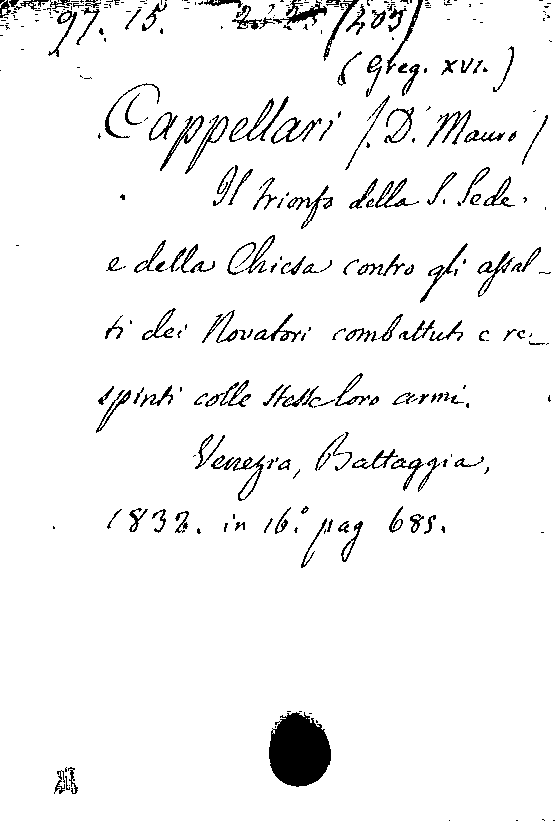 97. 15. (203)
(Greg. XVI.)
Cappellari (D. Mauro)
Il trionfo della S. Sede
e della Chiesa contro gli assal-
ti dei Novatori combattuti e re-
spinti colle stesse loro armi.
Venezia, Battaggia,
1832. in 16.° pag 685.